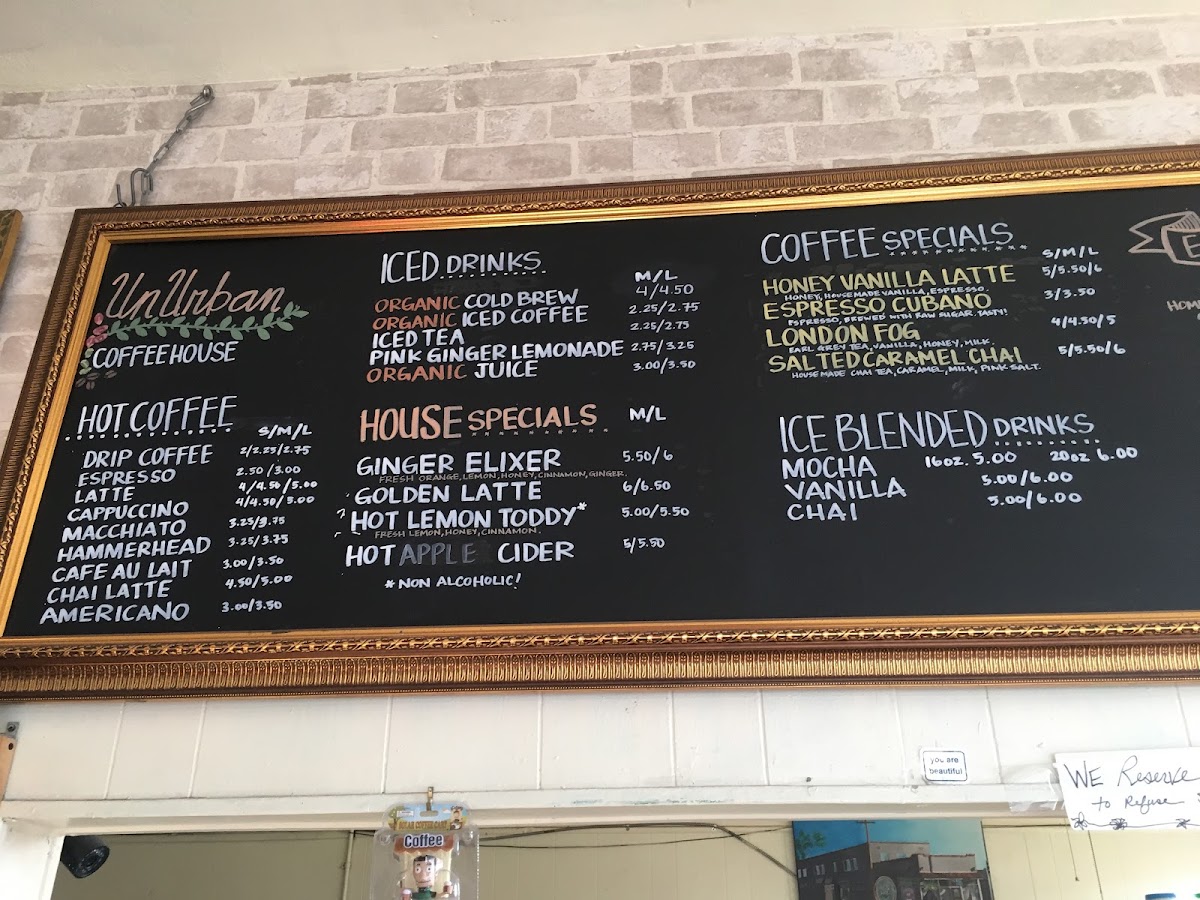 UnUrban
COFFEEHOUSE
HOT COFFEE S/M/L
DRIP COFFEE 2/2.25/2.75
ESPRESSO 2.50/3.00
LATTE 4/4.50/5.00
CAPPUCCINO 4/4.50/5.00
MACCHIATO 3.25/3.75
HAMMERHEAD 3.25/3.75
CAFE AU LAIT 3.00/3.50
CHAI LATTE 4.50/5.00
AMERICANO 3.00/3.50
ICED DRINKS M/L
ORGANIC COLD BREW 4/4.50
ORGANIC ICED COFFEE 2.25/2.75
ICED TEA 2.25/2.75
PINK GINGER LEMONADE 2.75/3.25
ORGANIC JUICE 3.00/3.50
HOUSE SPECIALS M/L
GINGER ELIXER 5.50/6
FRESH ORANGE, LEMON, HONEY, CINNAMON, GINGER.
GOLDEN LATTE 6/6.50
HOT LEMON TODDY* 5.00/5.50
FRESH LEMON, HONEY, CINNAMON.
HOT APPLE CIDER 5/5.50
*NON ALCOHOLIC!
COFFEE SPECIALS S/M/L
HONEY VANILLA LATTE 5/5.50/6
HONEY, HOUSEMADE VANILLA, ESPRESSO.
ESPRESSO CUBANO 3/3.50
ESPRESSO, BREWED WITH RAW SUGAR. TASTY!
LONDON FOG 4/4.50/5
EARL GREY TEA, VANILLA, HONEY, MILK.
SALTED CARAMEL CHAI 5/5.50/6
HOUSE MADE CHAI TEA, CARAMEL, MILK, PINK SALT.
ICE BLENDED DRINKS
MOCHA 16oz. 5.00 20oz 6.00
VANILLA 5.00/6.00
CHAI 5.00/6.00
you are
beautiful
WE Reserve
to Refuse
Coffee